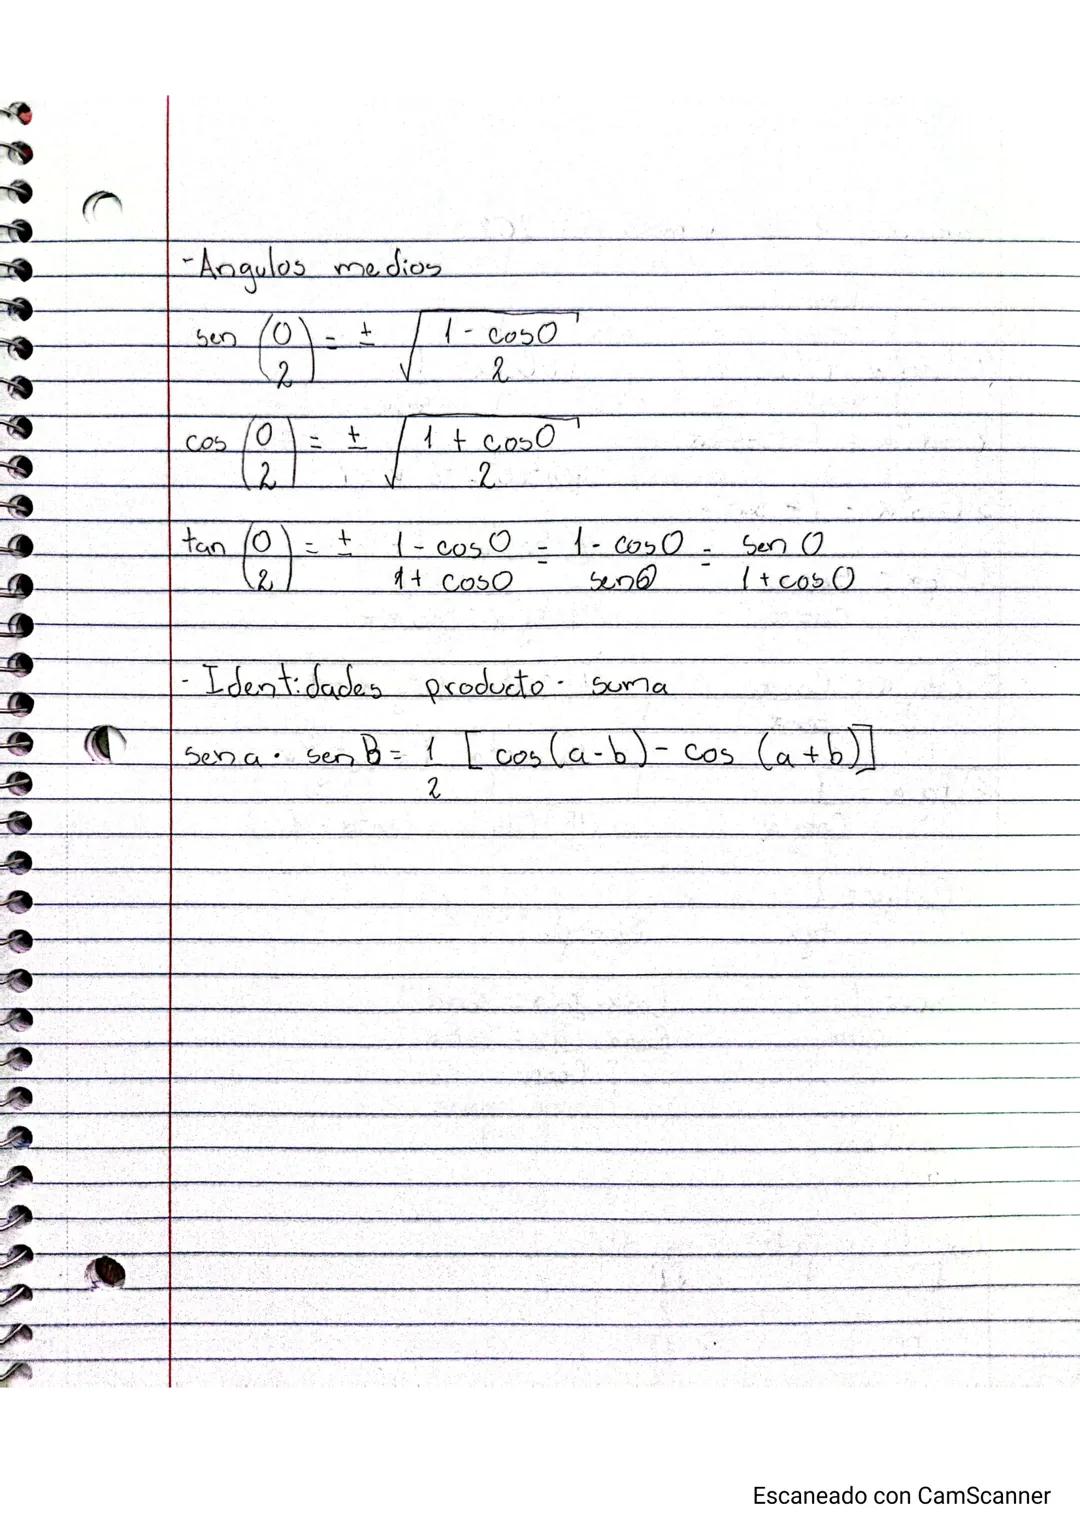 - Angulos medios
sen (0/2) = ± √(1 - cos0 / 2)
cos (0/2) = ± √(1 + cos0 / 2)
tan (0/2) = ± 1 - cos0 / 1 + cos0 = 1 - cos0 / senθ = sen 0 / 1 + cos0
- Identidades producto - suma
sen a · sen B = 1/2 [cos(a-b) - cos (a+b)]
Escaneado con CamScanner